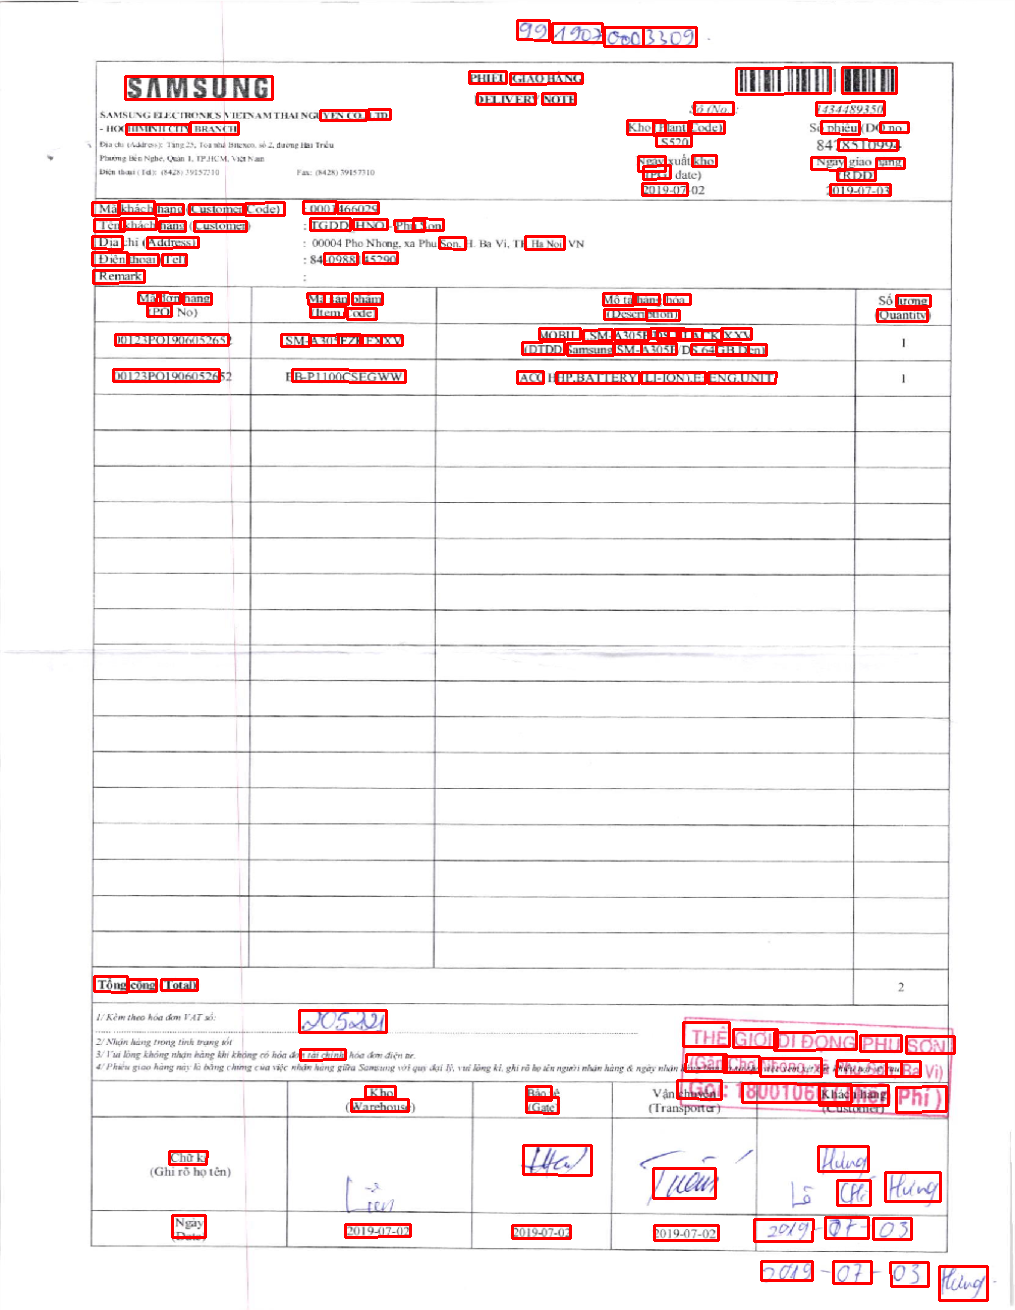 9919070003309
SAMSUNG
PHIẾU GIAO HÀNG
DELIVERY NOTE
SAMSUNG ELECTRONICS VIETNAM THAI NGUYEN CO., LTD
- HOCHIMINH CITY BRANCH
Địa chỉ (Address): Tầng 25, Toà nhà Bitexco, số 2, đường Hải Triều
Phường Bến Nghé, Quận 1, TP.HCM, Việt Nam
Điện thoại (Tel): (8428) 39157310 Fax: (8428) 39157310
Số (No.) : 7434489350
Kho (Plant Code) Số phiếu (DO no.)
S520 8428510994
Ngày xuất kho Ngày giao hàng
date) (RDD)
2019-07-02 2019-07-03
Mã khách hàng (Customer Code) : 0001466029
Tên khách hàng (Customer) : TGDD_HNO - Phú Sơn
Địa chỉ (Address) : 00004 Pho Nhong, xa Phu Son, H. Ba Vi, TP. Ha Noi, VN
Điện thoại (Tel) : 84-0988-45290
Remark :
Mã đơn hàng Mã sản phẩm Mô tả hàng hóa Số lượng
(PO No) (Item Code) (Description) (Quantity)
00123PO1906052652 SM-A305FZKFXXV MOBILE,SM-A305F,BLACK,XXV 1
(DTDD Samsung SM-A305F/DS,64GB,Đen)
00123PO1906052652 EB-P1100CSEGWW ACC HHP.BATTERY (LI-ION),E,ENG.UNIT 1
Tổng cộng (Total) 2
1/ Kèm theo hóa đơn VAT số: 205221
2/ Nhận hàng trong tình trạng tốt
3/ Vui lòng không nhận hàng khi không có hóa đơn tài chính, hóa đơn điện tử.
4/ Phiếu giao hàng này là bằng chứng của việc nhận hàng giữa Samsung với quý đại lý, vui lòng kí, ghi rõ họ tên người nhận hàng & ngày nhận
THẾ GIỚI DI ĐỘNG PHÚ SƠN
(Gần Chợ Nhong, Ba Vì)
Gọi: 18001061 (Miễn Phí)
Kho Bảo vệ Vận chuyển Khách hàng
(Warehouse) (Gate) (Transporter) (Customer)
Chữ kí
(Ghi rõ họ tên)
Liên Tuấn Hưng
Lê Chí Hưng
Ngày
(Date)
2019-07-02 2019-07-02 2019-07-02 2019-07-03
2019-07-03 Hưng